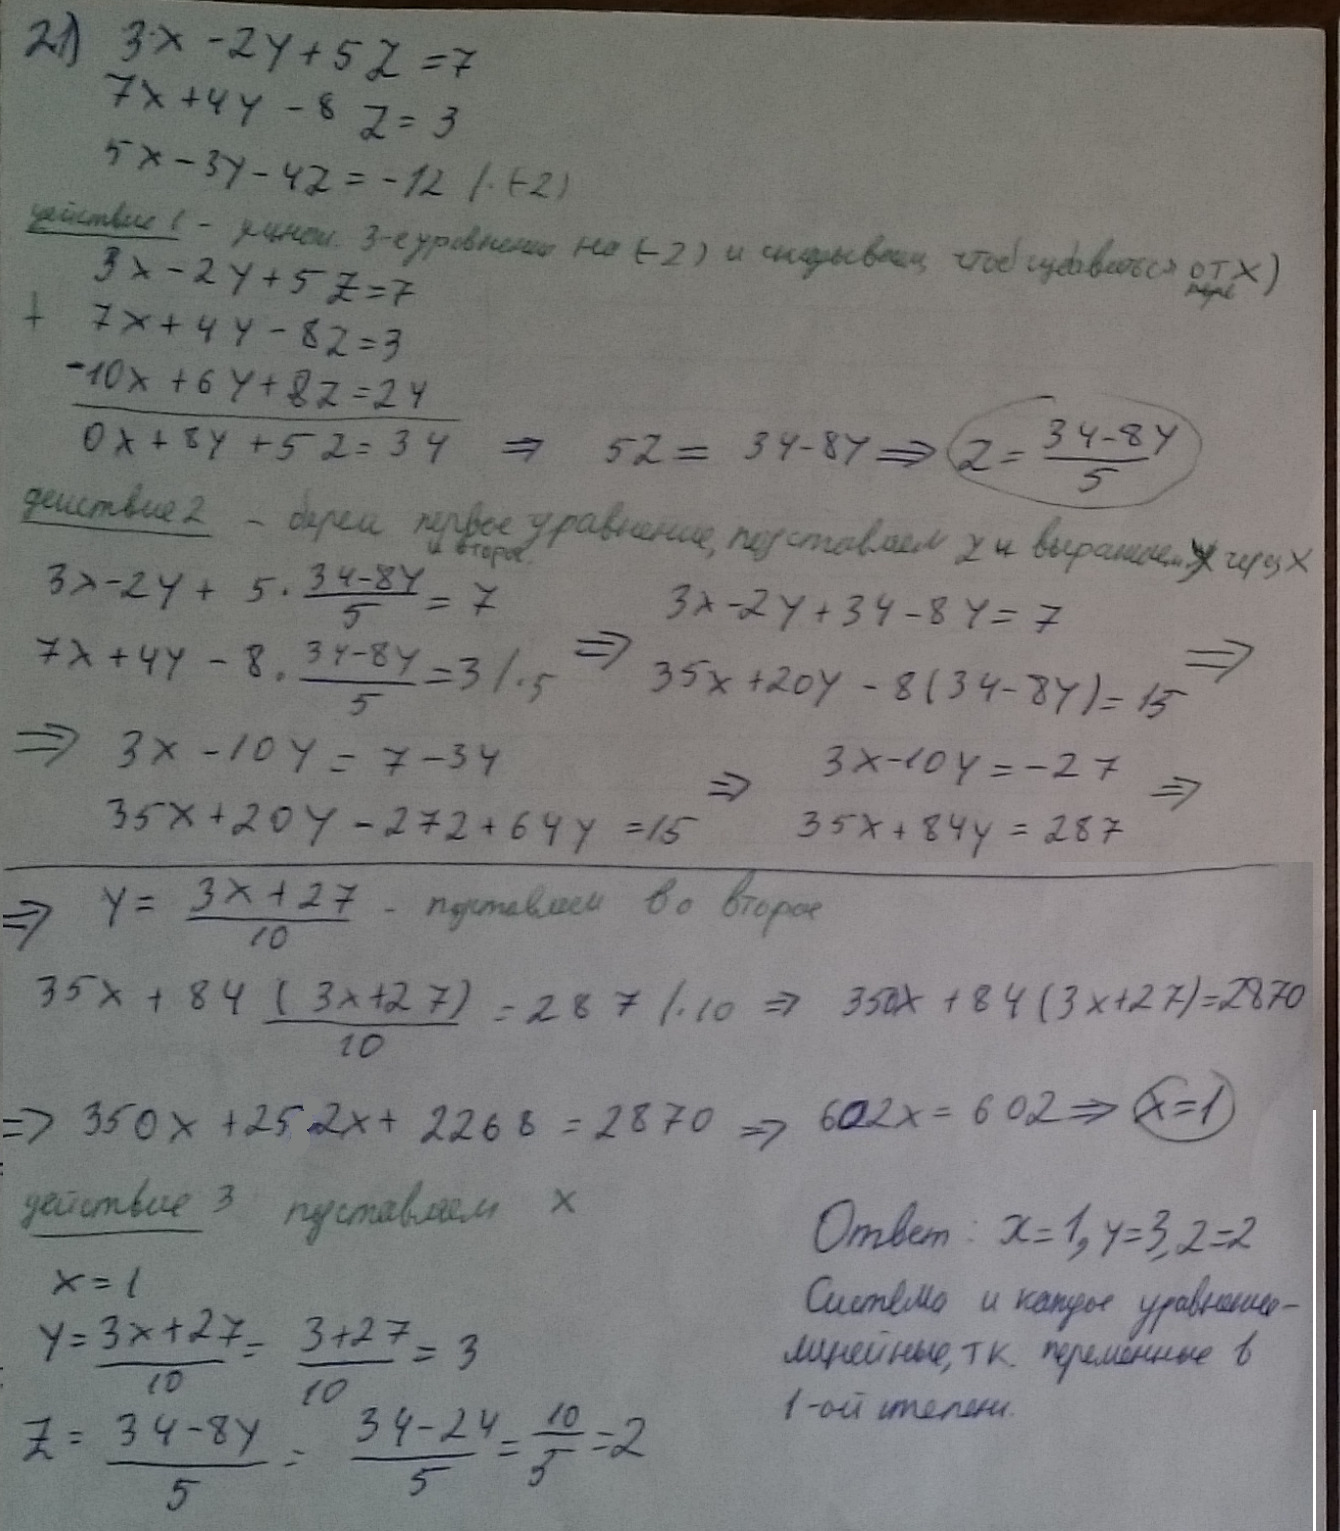 21) 3x - 2y + 5z = 7
7x + 4y - 8z = 3
5x - 3y - 4z = -12 /·(-2)
действие 1 - умнож. 3-е уравнение на (-2) и складываем, чтоб избавиться от x)
3x - 2y + 5z = 7
+ 7x + 4y - 8z = 3
-10x + 6y + 8z = 24
0x + 8y + 5z = 34 ⇒ 5z = 34 - 8y ⇒ z = (34-8y)/5
действие 2 - берем первое и второе уравнение, подставляем z и выражаем y через x
3x - 2y + 5 · (34-8y)/5 = 7 3x - 2y + 34 - 8y = 7
7x + 4y - 8 · (34-8y)/5 = 3 /·5 ⇒ 35x + 20y - 8(34 - 8y) = 15 ⇒
⇒ 3x - 10y = 7 - 34 3x - 10y = -27
35x + 20y - 272 + 64y = 15 ⇒ 35x + 84y = 287 ⇒
⇒ y = (3x+27)/10 - подставляем во второе
35x + 84 (3x+27)/10 = 287 /·10 ⇒ 350x + 84(3x+27) = 2870
⇒ 350x + 252x + 2268 = 2870 ⇒ 602x = 602 ⇒ x = 1
действие 3 подставляем x
x = 1
y = (3x+27)/10 = (3+27)/10 = 3
z = (34-8y)/5 = (34-24)/5 = 10/5 = 2
Ответ: x=1, y=3, z=2
Система и каждое уравнение -
линейные, т.к. переменные в
1-ой степени.